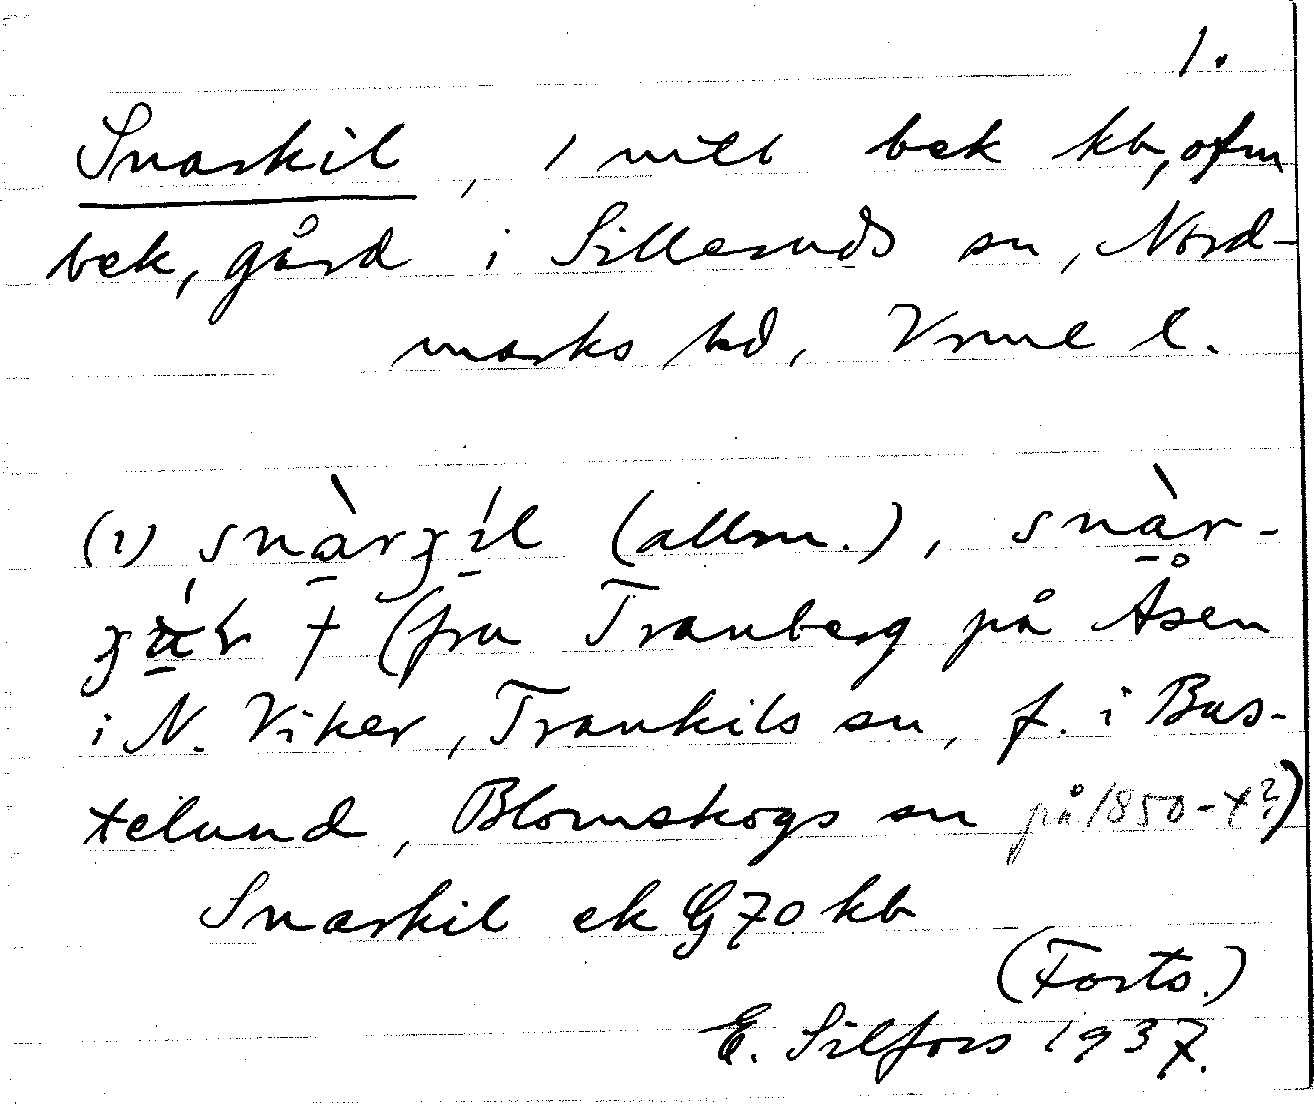 1.
Snarkil, 1 mtl bek kb, ofm
bek, gård i Silleruds sn, Nord-
marks hd, Vrml l.
(1) snàrʒíl (allm.), snàr-
† (fru Tranberg på Åsen
i N. Viker, Trankils sn, f. i Bas-
telund, Blomskogs sn på 1850-t?)
Snarkil ek G70 kb
(Forts.)
E. Silfors 1937.